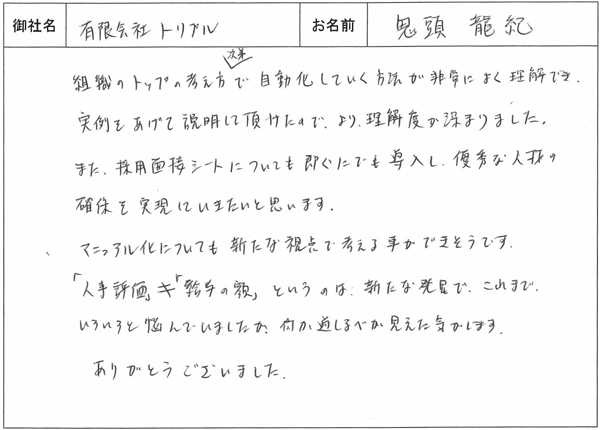 御社名 有限会社トリプル お名前 鬼頭 龍紀
組織のトップの考え方次第で自動化していく方法が非常によく理解でき、
実例をあげて説明して頂けたので、より理解度が深まりました。
また、採用面接シートについても即ぐにでも導入し、優秀な人材の
確保を実現していきたいと思います。
マニュアル化についても新たな視点で考える事ができそうです。
「人事評価」≠「給与の額」というのは、新たな発見で、これまで、
いろいろと悩んでいましたが、何か道しるべが見えた気がします。
ありがとうございました。